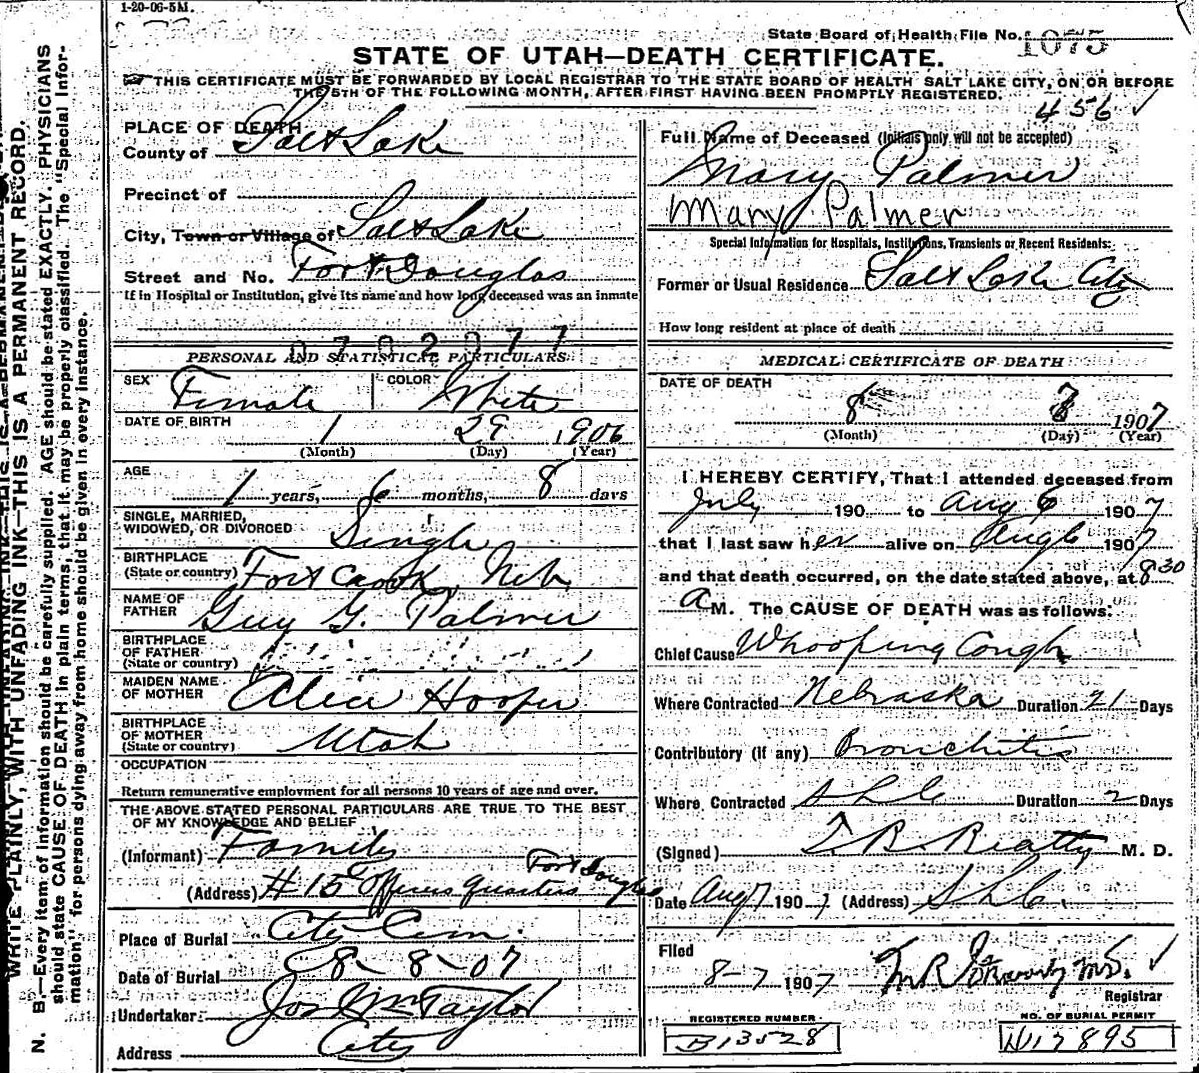 1-20-06-5M.
State Board of Health File No. 1075
STATE OF UTAH—DEATH CERTIFICATE.
THIS CERTIFICATE MUST BE FORWARDED BY LOCAL REGISTRAR TO THE STATE BOARD OF HEALTH SALT LAKE CITY, ON OR BEFORE
THE 5TH OF THE FOLLOWING MONTH, AFTER FIRST HAVING BEEN PROMPTLY REGISTERED.
456 ✓
PLACE OF DEATH
County of Salt Lake
Precinct of
City, Town or Village of Salt Lake
Street and No. Fort Douglas
If in Hospital or Institution, give its name and how long deceased was an inmate
0702077
PERSONAL AND STATISTICAL PARTICULARS
SEX Female COLOR White
DATE OF BIRTH 1 29 1906
(Month) (Day) (Year)
AGE 1 years, 6 months, 8 days
SINGLE, MARRIED,
WIDOWED, OR DIVORCED Single
BIRTHPLACE
(State or country) Fort Crook, Neb
NAME OF
FATHER Guy G. Palmer
BIRTHPLACE
OF FATHER
(State or country)
MAIDEN NAME
OF MOTHER Alice Hooper
BIRTHPLACE
OF MOTHER
(State or country) Utah
OCCUPATION
Return remunerative employment for all persons 10 years of age and over.
THE ABOVE STATED PERSONAL PARTICULARS ARE TRUE TO THE BEST
OF MY KNOWLEDGE AND BELIEF
(Informant) Family
(Address) #15 Officers Quarters Fort Douglas
Place of Burial City Cem.
Date of Burial 8-8-07
Undertaker Jos Wm Taylor
Address City
Full Name of Deceased (Initials only will not be accepted)
Mary Palmer
Mary Palmer
Special Information for Hospitals, Institutions, Transients or Recent Residents:
Former or Usual Residence Salt Lake City
How long resident at place of death
MEDICAL CERTIFICATE OF DEATH
DATE OF DEATH
8 7 1907
(Month) (Day) (Year)
I HEREBY CERTIFY, That I attended deceased from
July 190 to Aug 6 1907
that I last saw her alive on Aug 6 1907
and that death occurred, on the date stated above, at 8 30
A M. The CAUSE OF DEATH was as follows:
Chief Cause Whooping Cough
Where Contracted Nebraska Duration 21 Days
Contributory (if any) Bronchitis
Where Contracted S L C Duration 2 Days
(Signed) T. B. Beatty M. D.
Date Aug 7 1907 (Address) S L C.
Filed
8-7 1907 M.D. ✓
Registrar
REGISTERED NUMBER
B13528
NO. OF BURIAL PERMIT
N17895
WRITE PLAINLY, WITH UNFADING INK—THIS IS A PERMANENT RECORD.
N. B.—Every item of information should be carefully supplied. AGE should be stated EXACTLY. PHYSICIANS
should state CAUSE OF DEATH in plain terms, that it may be properly classified. The "Special Infor-
mation" for persons dying away from home should be given in every instance.